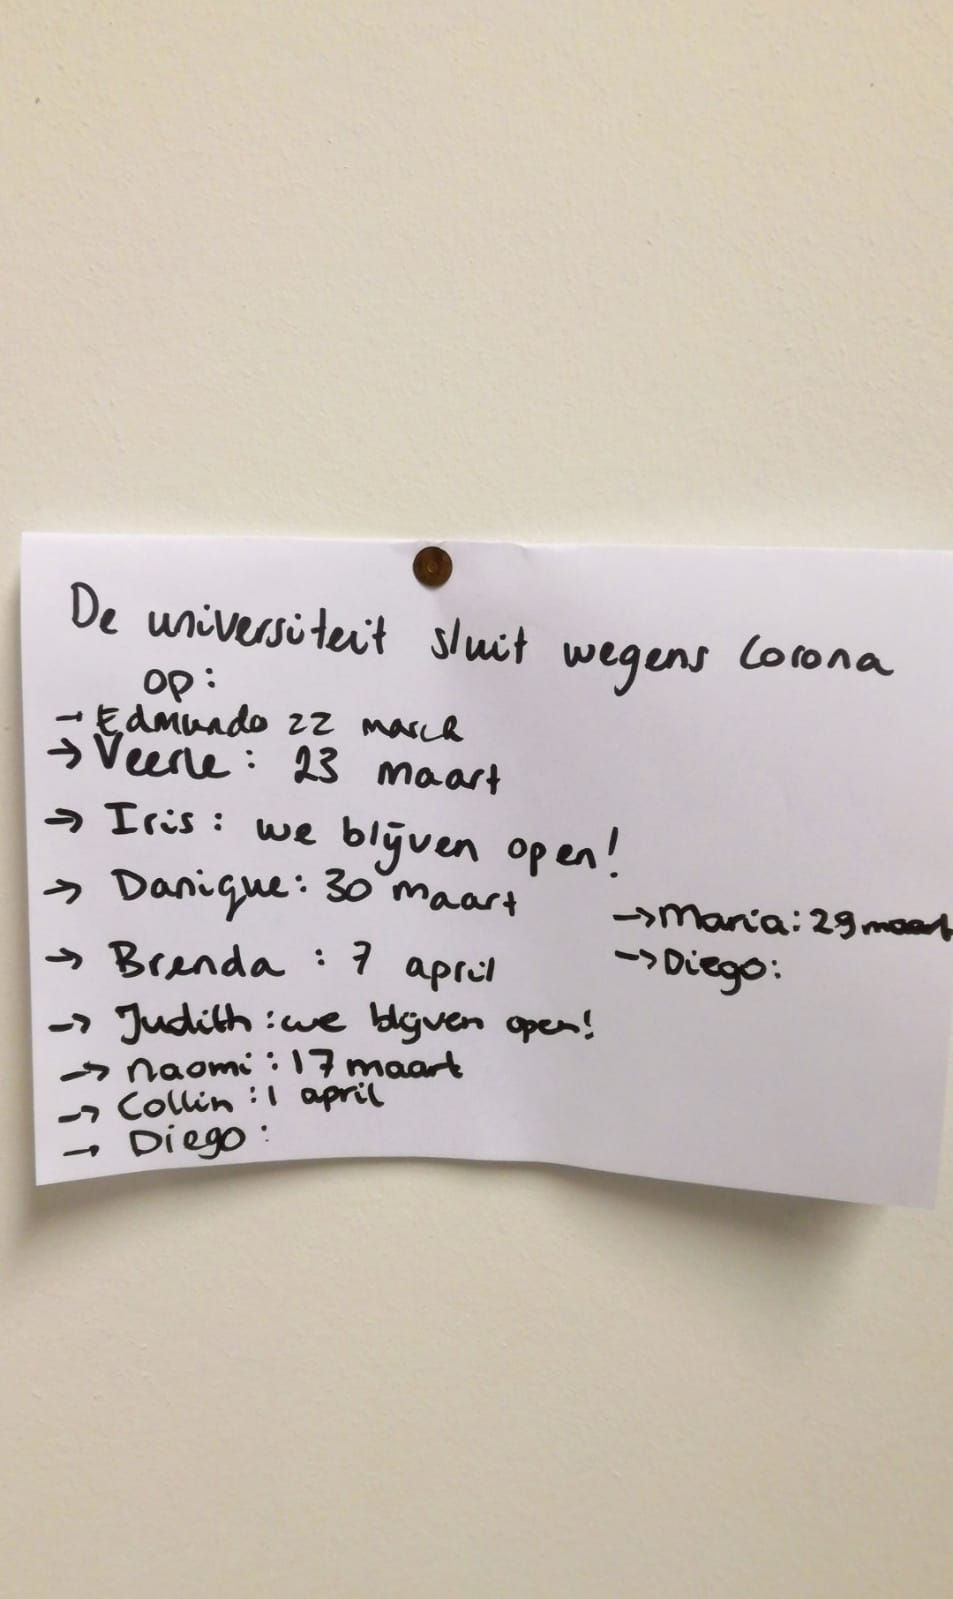 De universiteit sluit wegens Corona
op:
→ Edmundo 22 march
→ Veerle: 23 maart
→ Iris: we blijven open!
→ Danique: 30 maart
→ Brenda : 7 april
→ Judith: we blijven open!
→ Naomi: 17 maart
→ Collin: 1 april
→ Diego:
→ Maria: 29 maart
→ Diego: